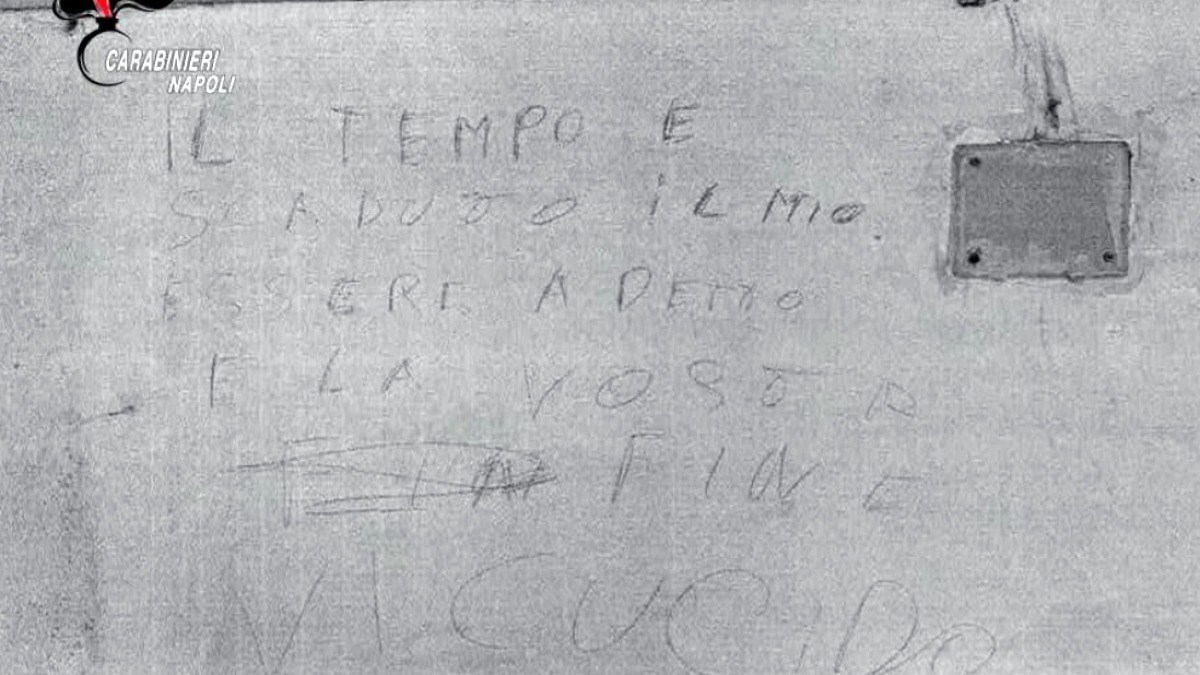 CARABINIERI
NAPOLI
IL TEMPO E
SCADUTO iL MIO.
ESSERE A DETTO
E LA VOSTA
FIN FINE
VI CUCiDO